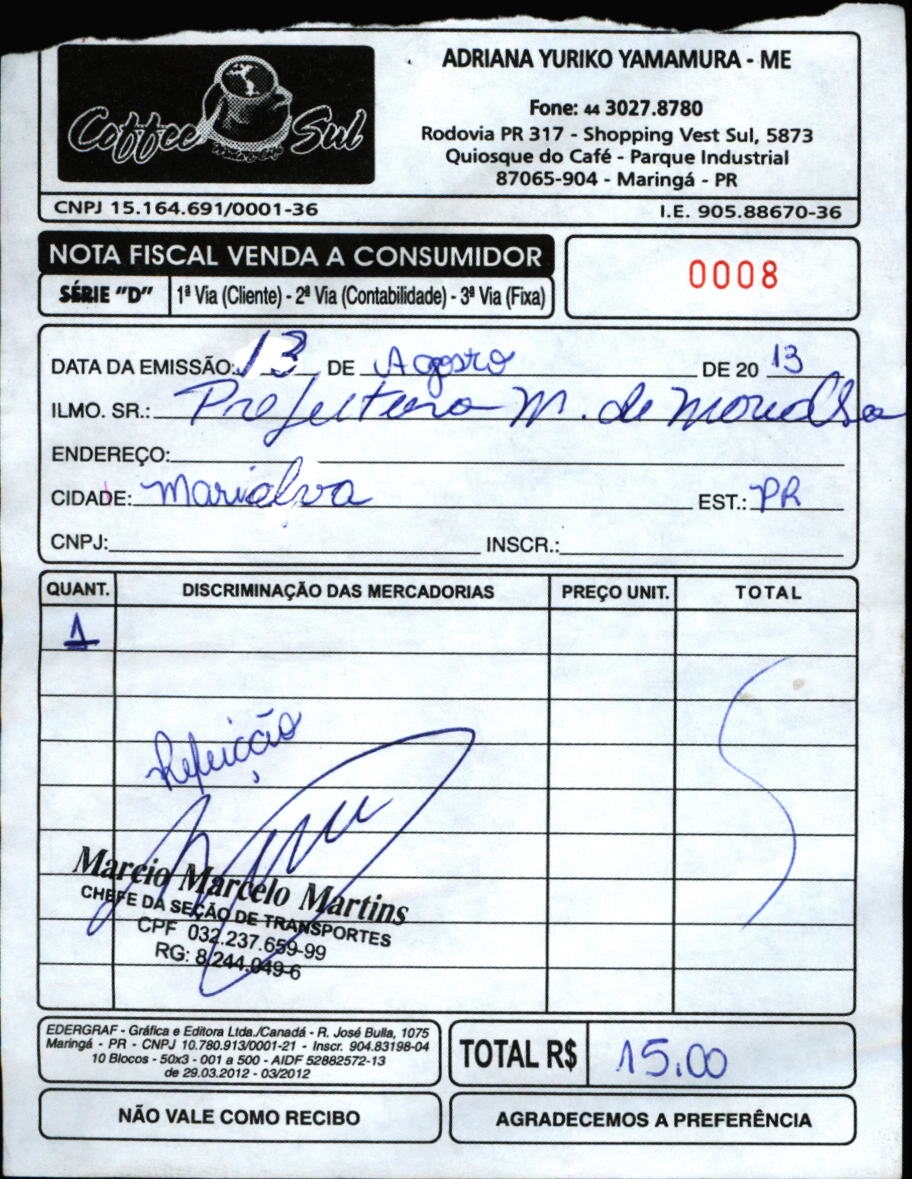 Coffee Sul
ADRIANA YURIKO YAMAMURA - ME
Fone: 44 3027.8780
Rodovia PR 317 - Shopping Vest Sul, 5873
Quiosque do Café - Parque Industrial
87065-904 - Maringá - PR
CNPJ 15.164.691/0001-36
I.E. 905.88670-36
NOTA FISCAL VENDA A CONSUMIDOR
SÉRIE "D" 1ª Via (Cliente) - 2ª Via (Contabilidade) - 3ª Via (Fixa)
0008
DATA DA EMISSÃO: 13 DE Agosto DE 20 13
ILMO. SR.: Prefeitura M. de Marialva
ENDEREÇO:
CIDADE: Marialva EST.: PR
CNPJ: INSCR.:
QUANT. DISCRIMINAÇÃO DAS MERCADORIAS PREÇO UNIT. TOTAL
1
Refeicção
Marcio Marcelo Martins
CHEFE DA SEÇÃO DE TRANSPORTES
CPF 032.237.659-99
RG: 8.244.049-6
EDERGRAF - Gráfica e Editora Ltda./Canadá - R. José Bulla, 1075
Maringá - PR - CNPJ 10.780.913/0001-21 - Inscr. 904.83198-04
10 Blocos - 50x3 - 001 a 500 - AIDF 52882572-13
de 29.03.2012 - 03/2012
TOTAL R$ 15.00
NÃO VALE COMO RECIBO
AGRADECEMOS A PREFERÊNCIA